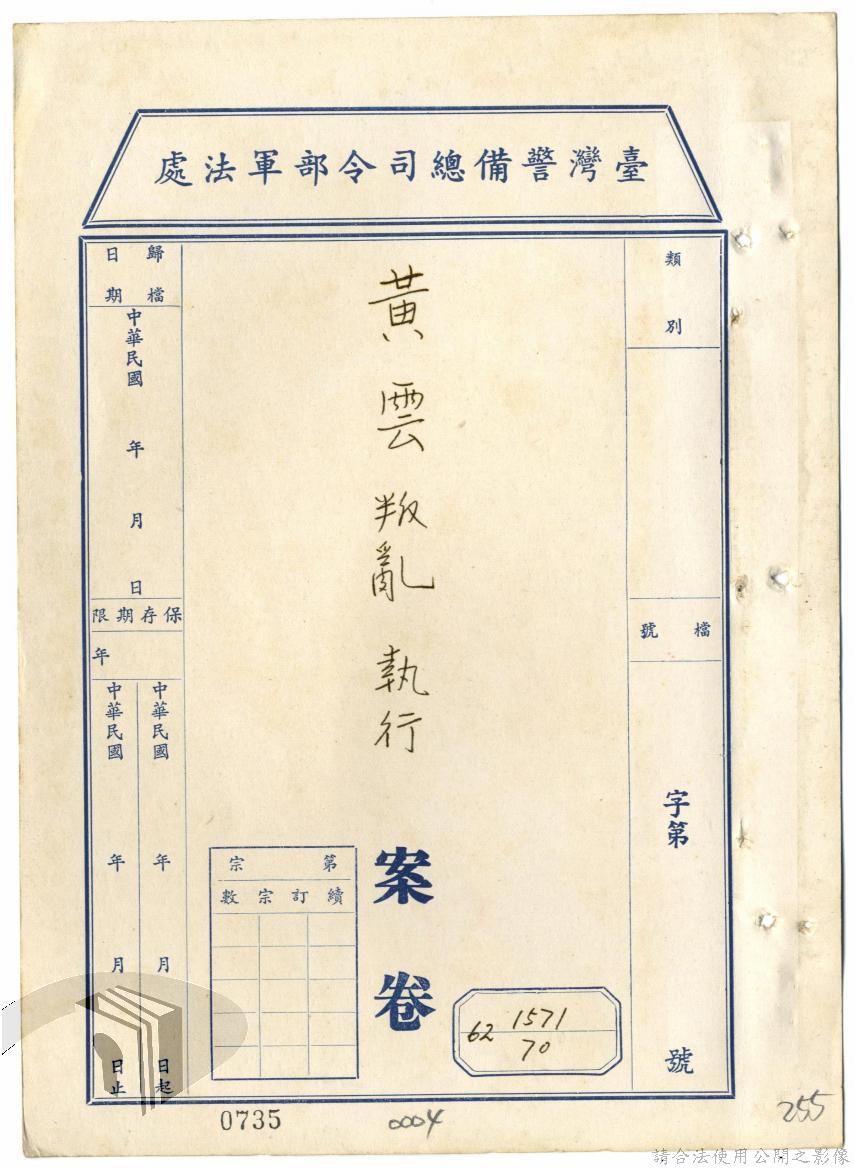 臺灣警備總司令部軍法處
類別
檔號
字第
號
黃雲叛亂執行
案卷
第宗
續訂宗數
62 1571
70
歸檔日期
中華民國 年 月 日
保存期限
年
中華民國 年 月 日起
中華民國 年 月 日止
0735
0004
255
請合法使用公開之影像